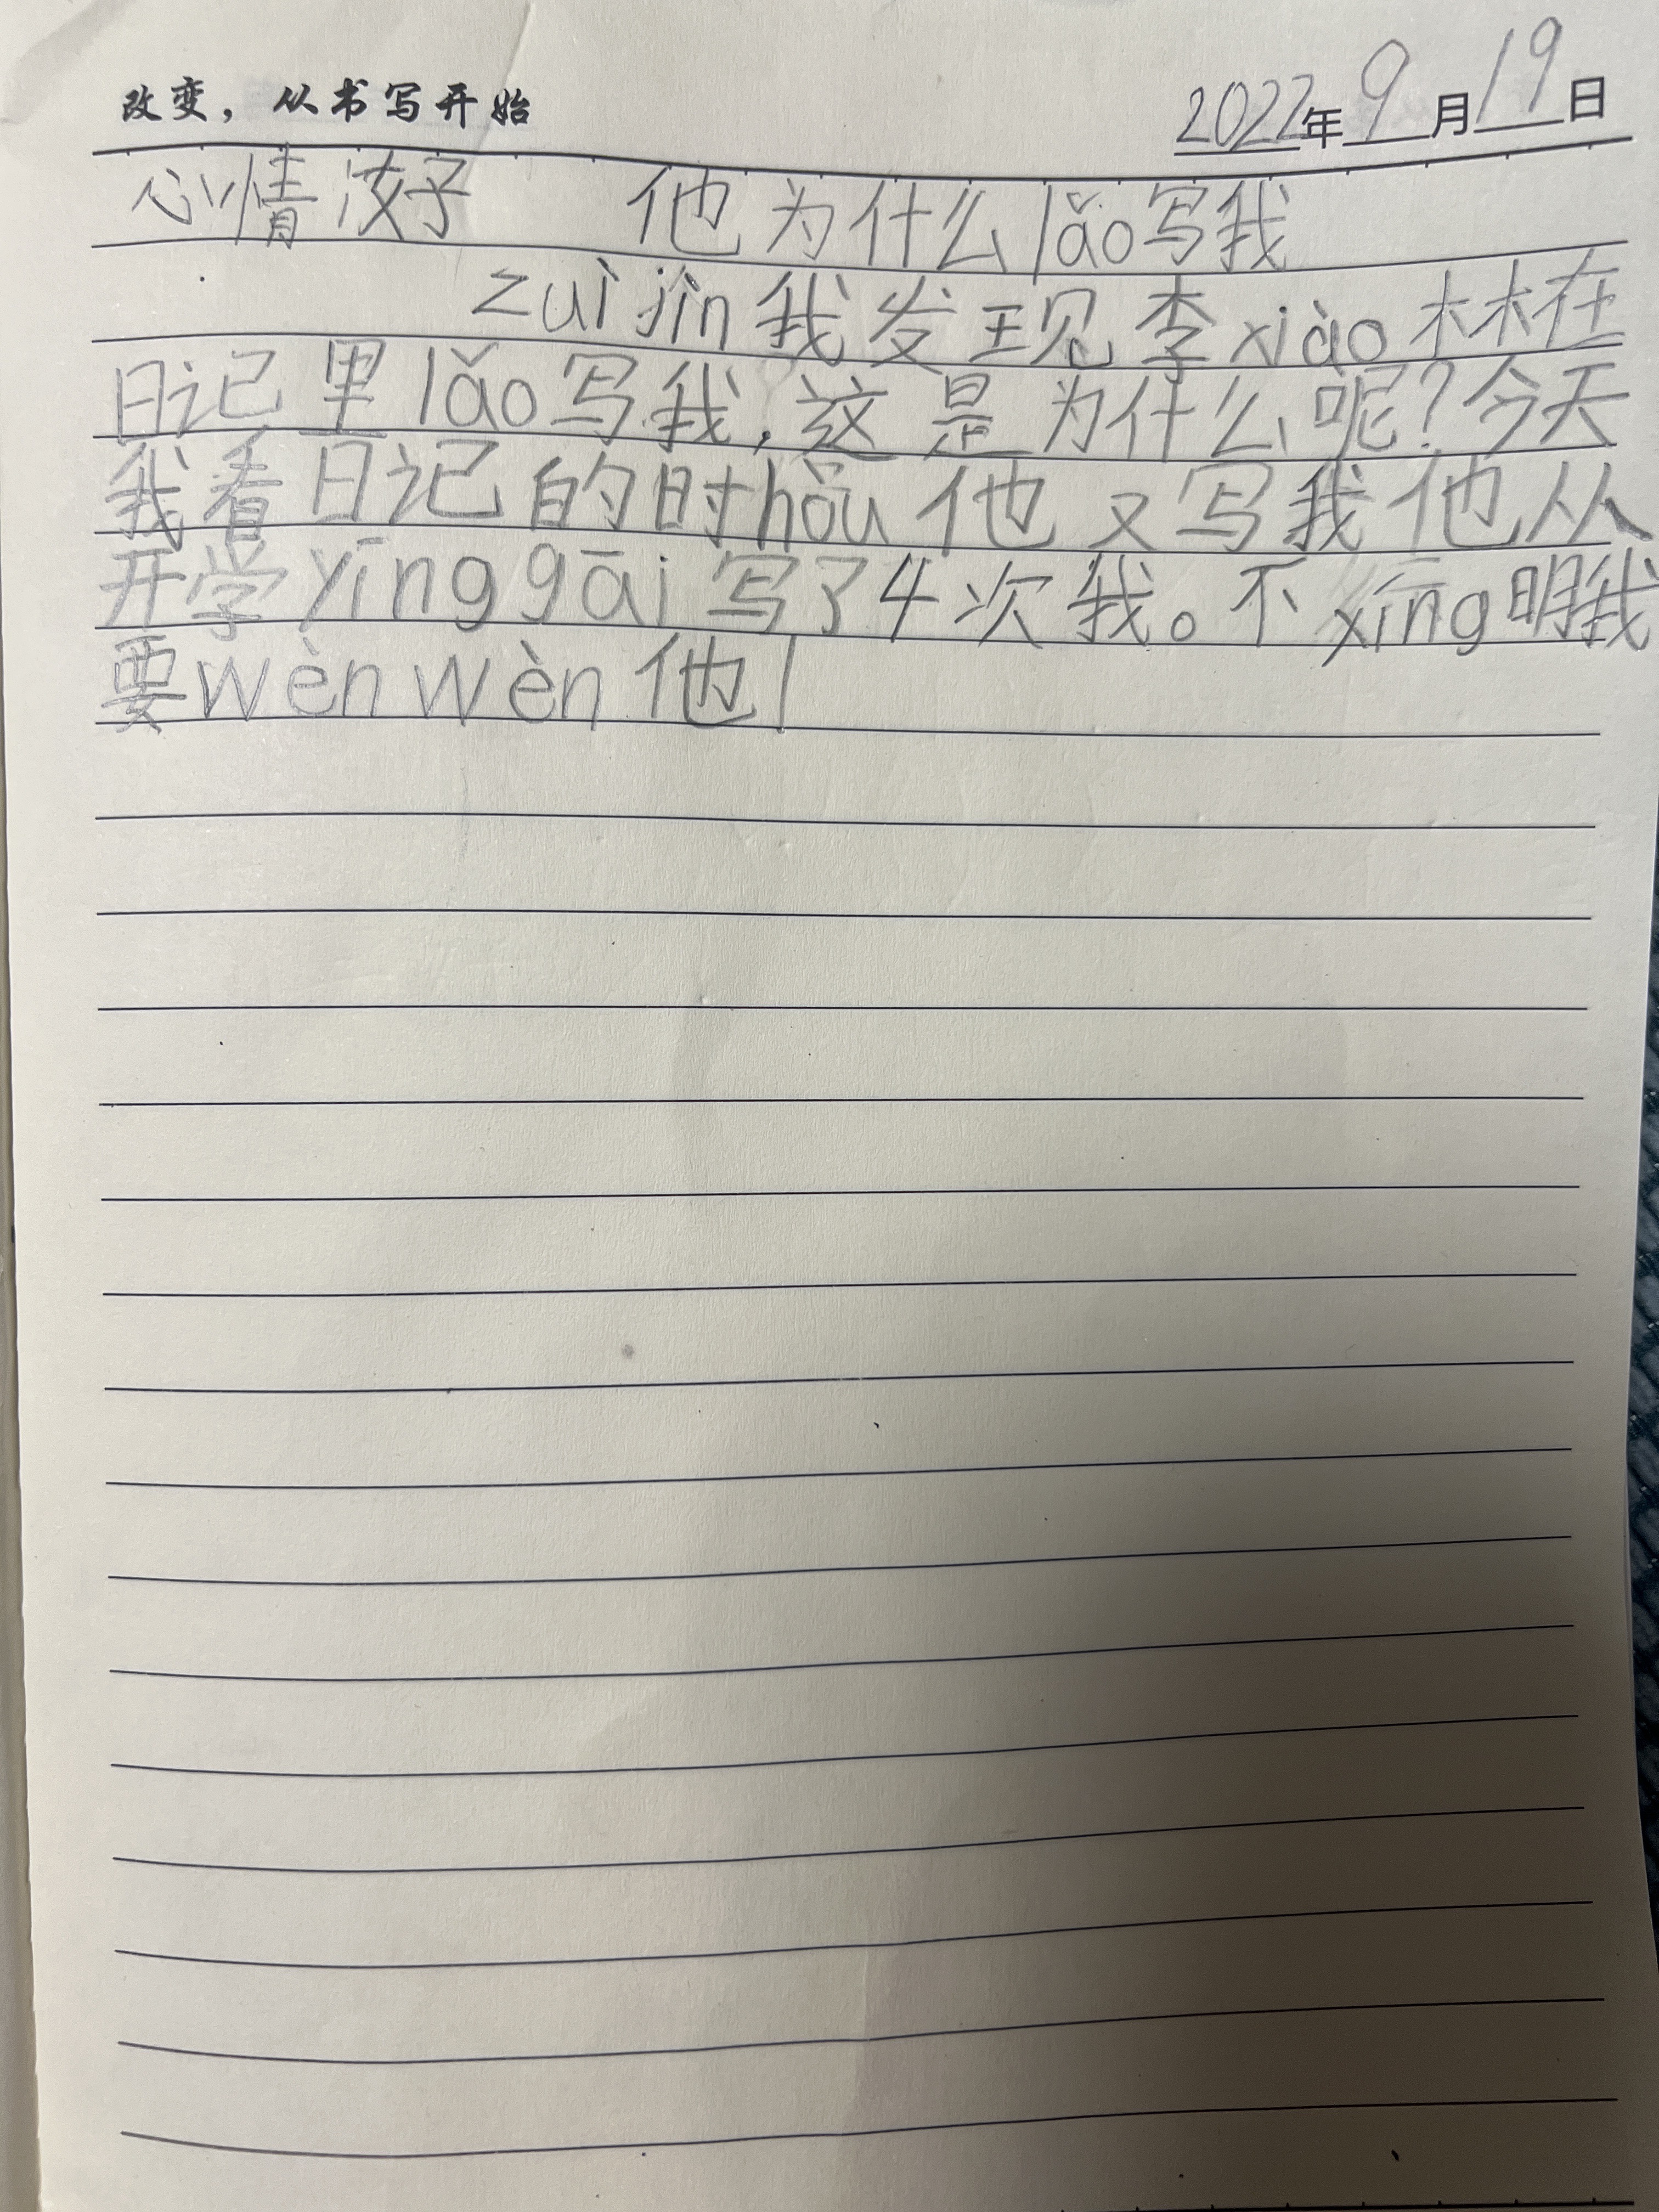 改变，从书写开始
2022年9月19日
心情 好 他为什么lǎo写我
zuì jìn我发现李xiào林在
日记里lǎo写我，这是为什么呢？今天
我看日记的时hòu他又写我他从
开学yīng gāi写了4次我。不xíng明我
要wèn wèn他